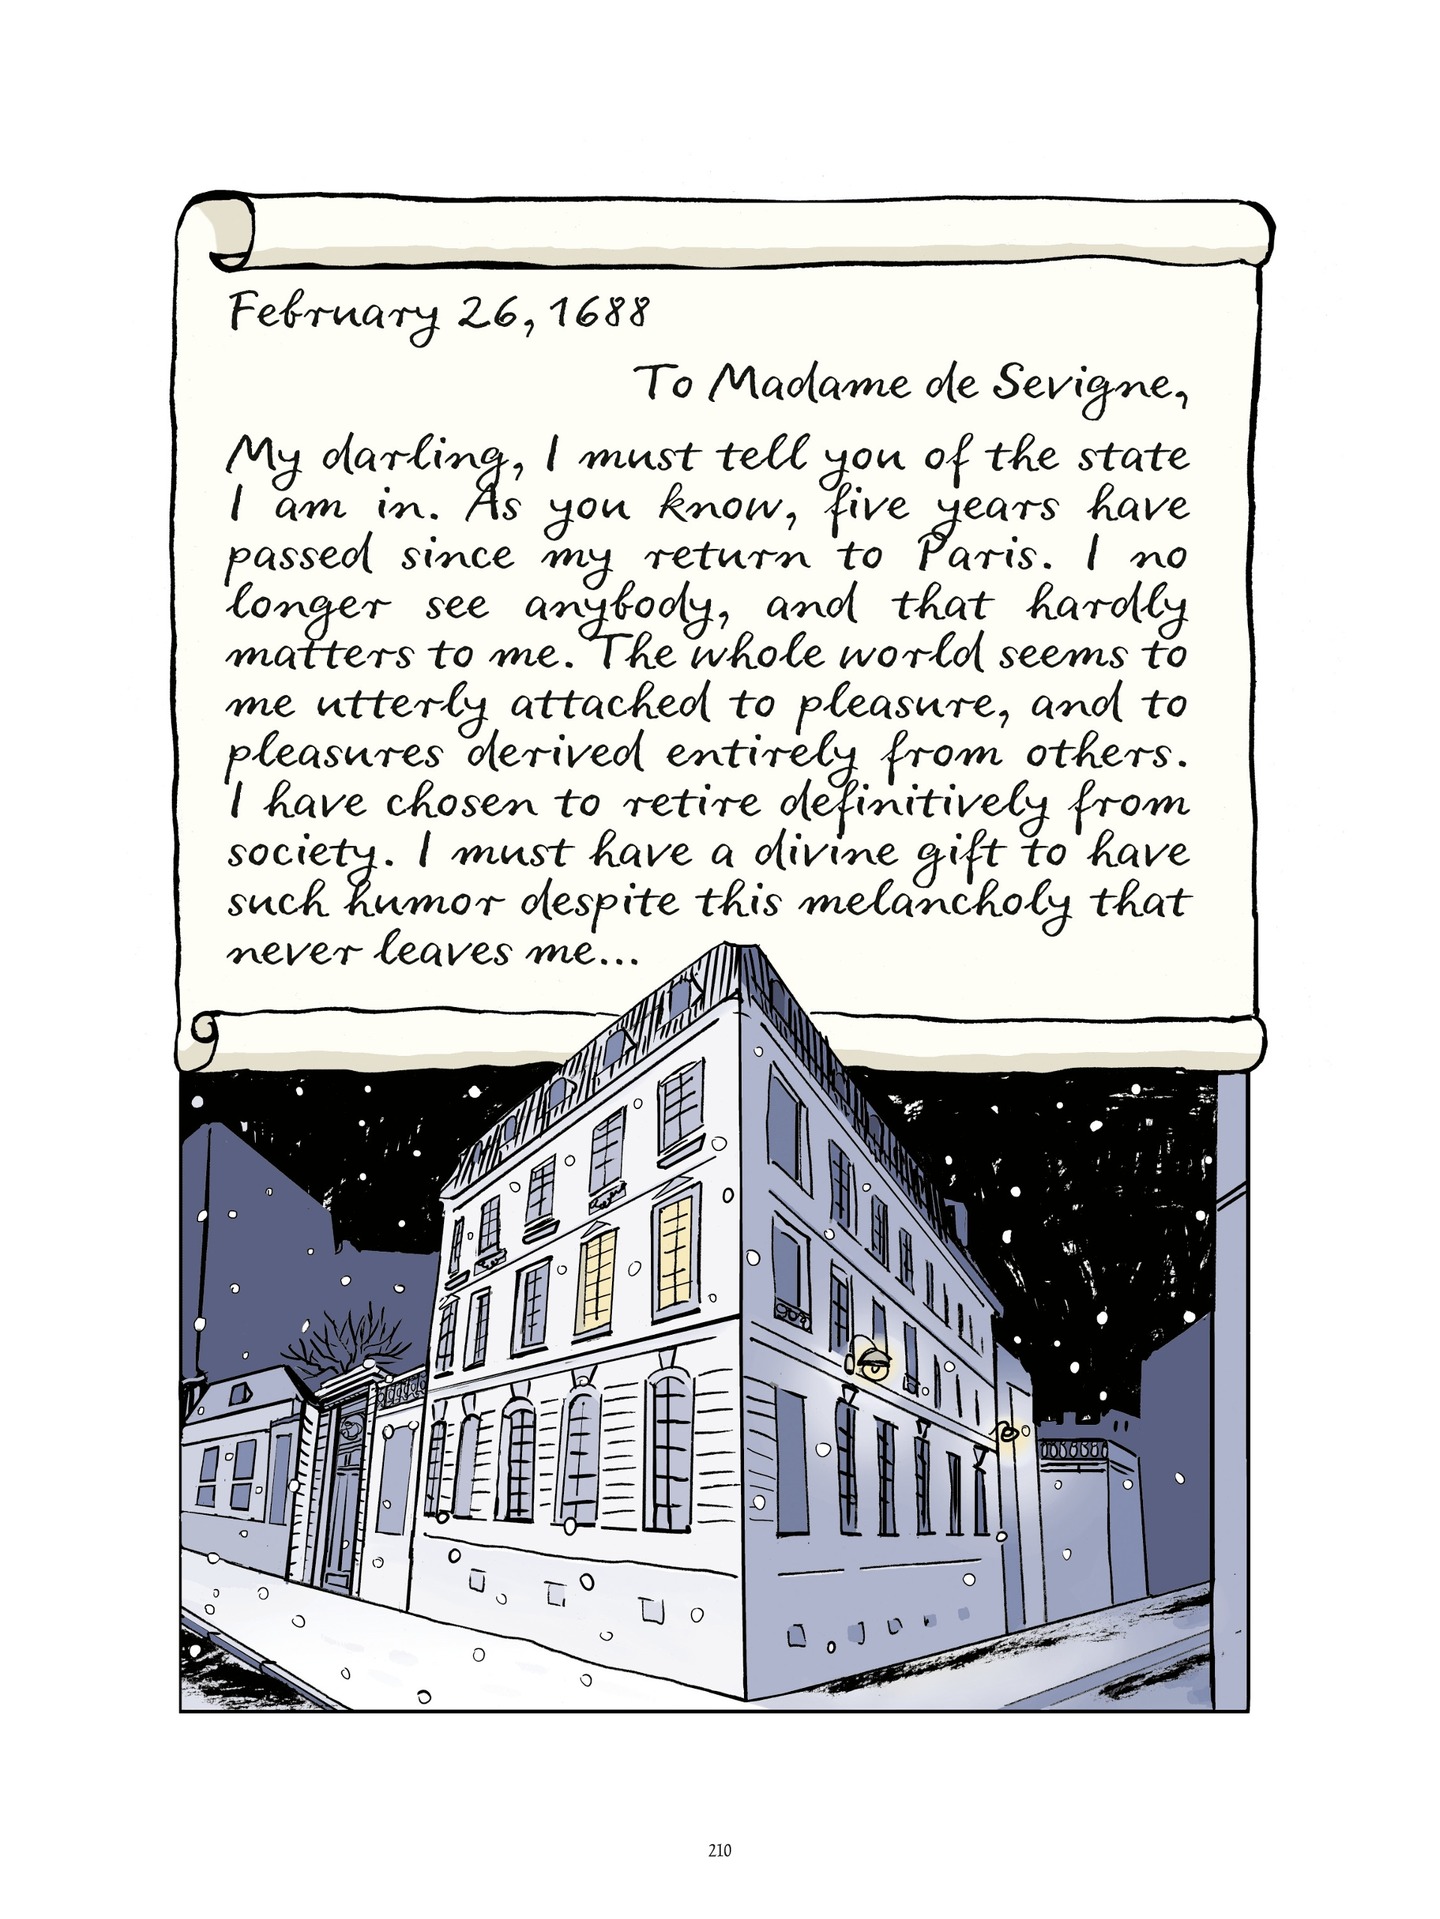 February 26, 1688
To Madame de Sevigne,
My darling, I must tell you of the state
I am in. As you know, five years have
passed since my return to Paris. I no
longer see anybody, and that hardly
matters to me. The whole world seems to
me utterly attached to pleasure, and to
pleasures derived entirely from others.
I have chosen to retire definitively from
society. I must have a divine gift to have
such humor despite this melancholy that
never leaves me...
210